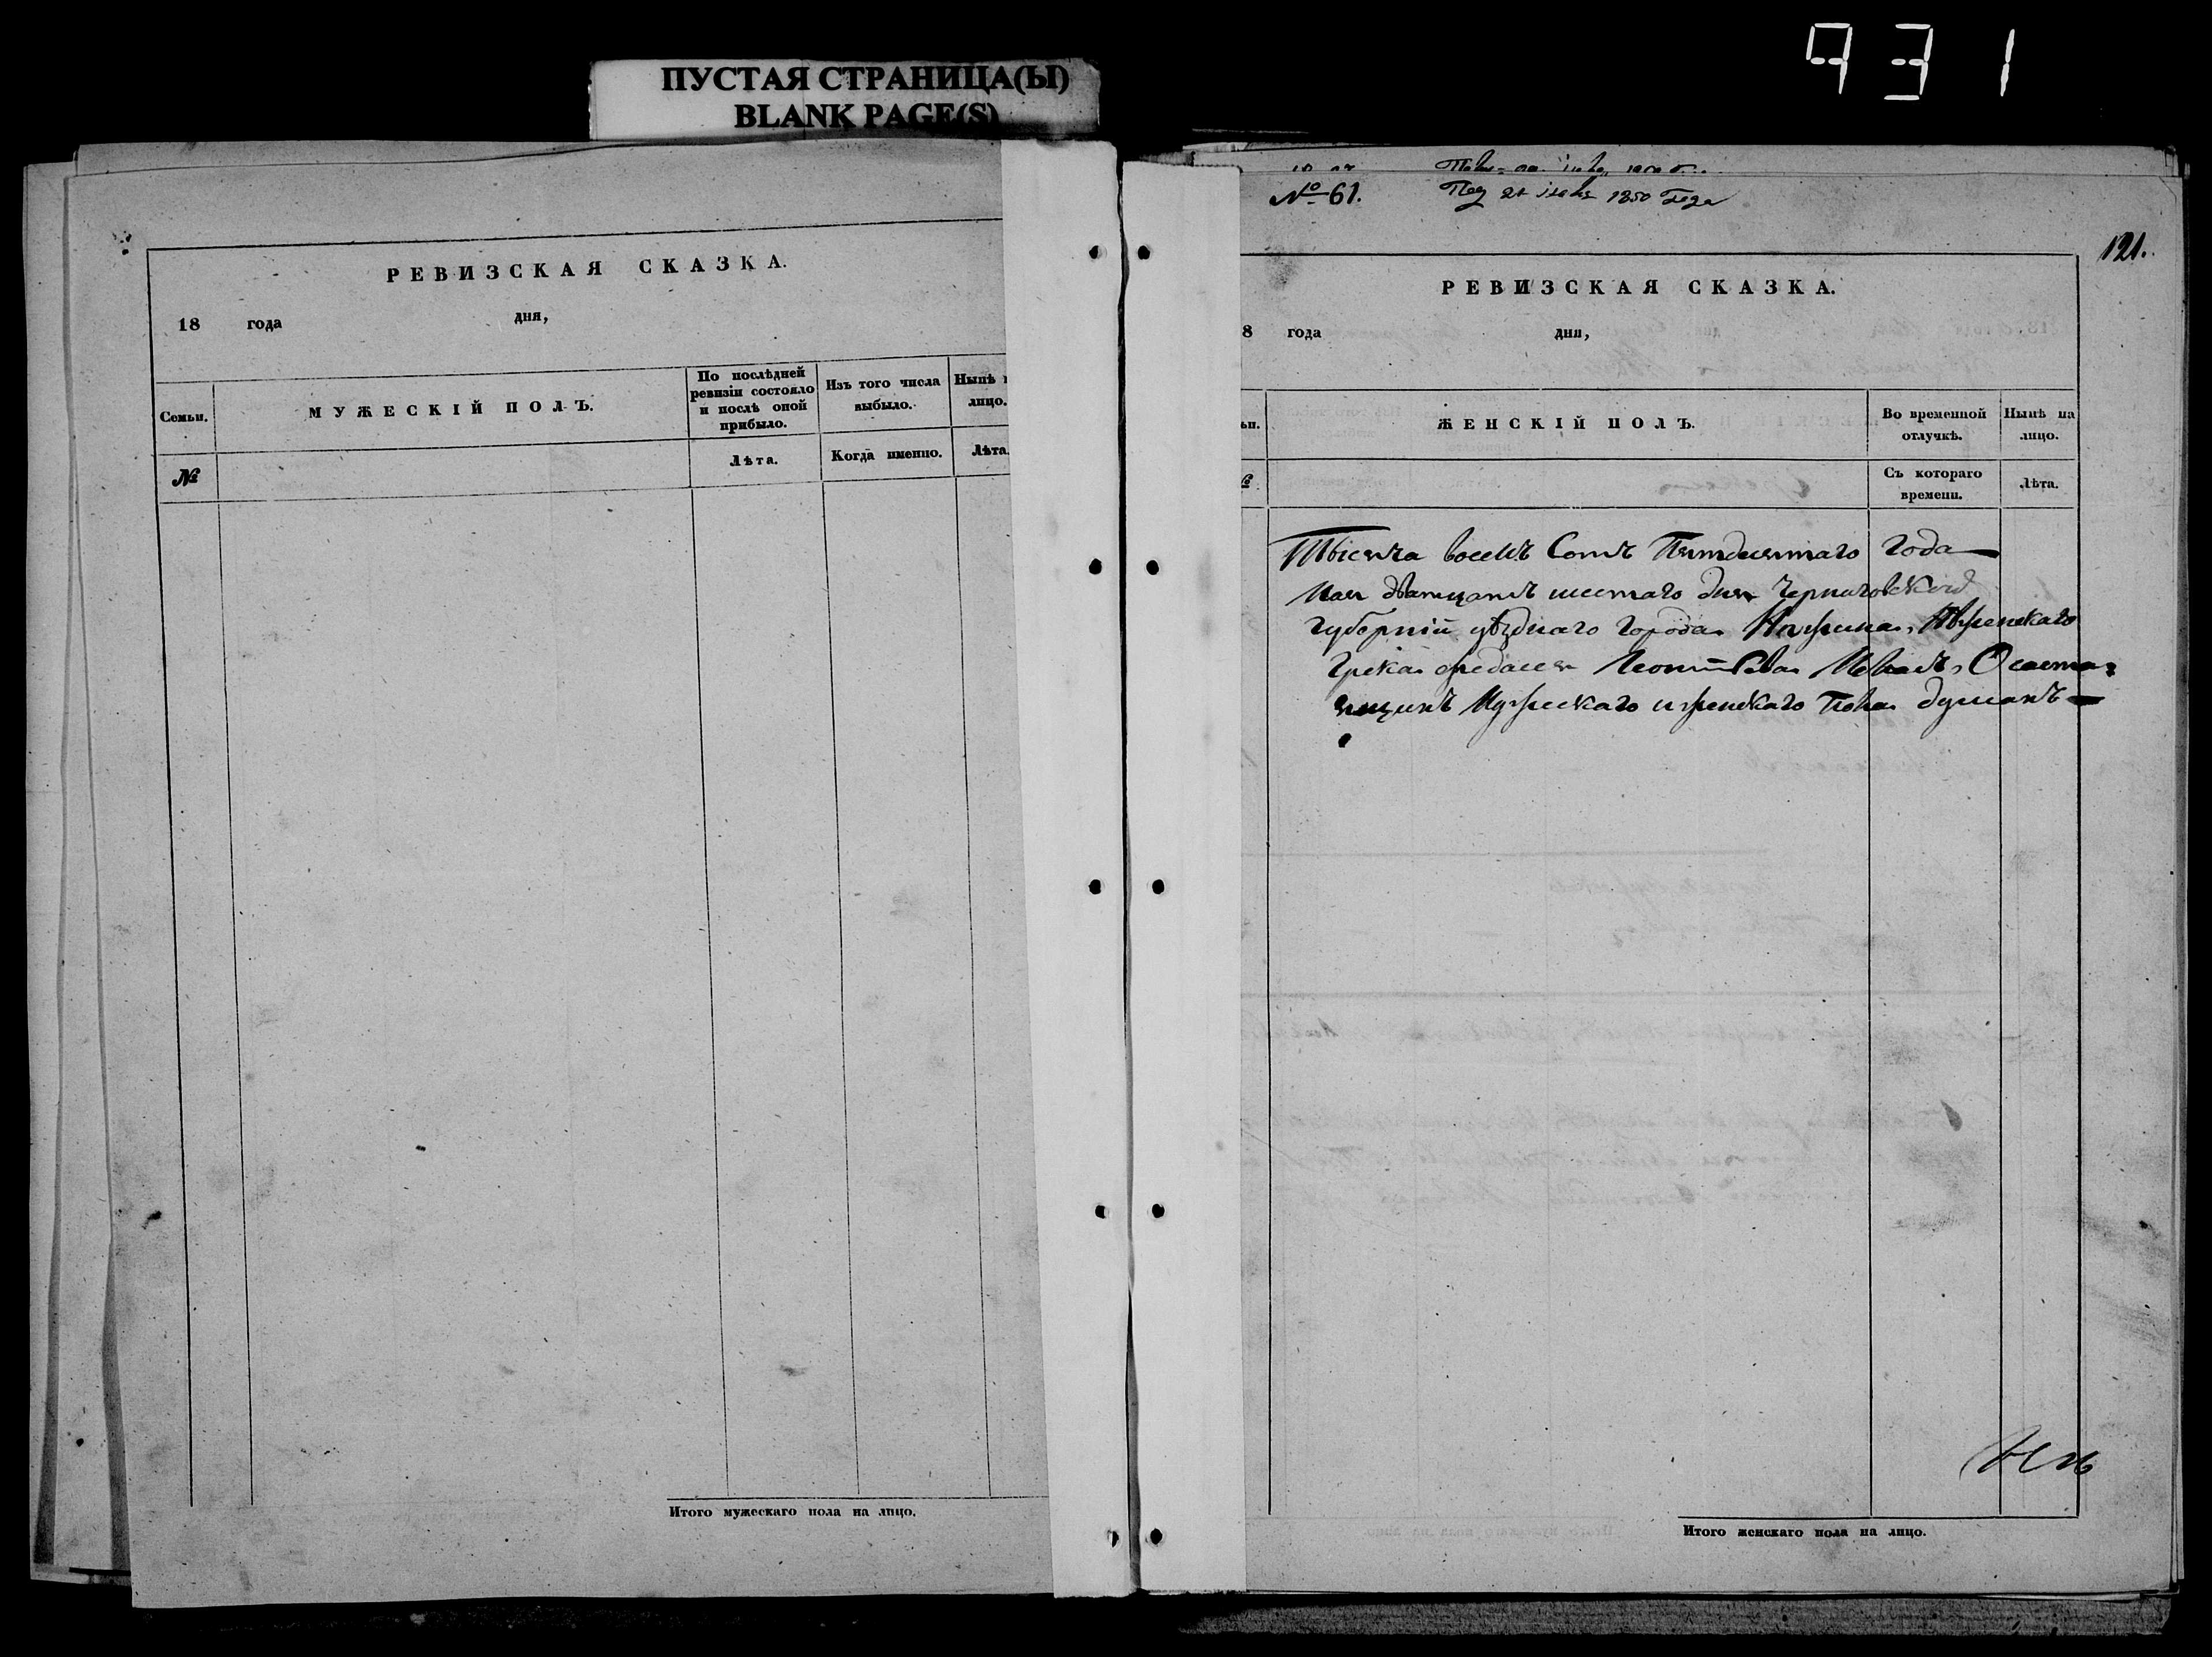 931
ПУСТАЯ СТРАНИЦА(Ы)
BLANK PAGE(S)
РЕВИЗСКАЯ СКАЗКА.
18 года дня,
Семьи.
МУЖЕСКІЙ ПОЛЪ.
По послѣдней ревизіи состояло и послѣ оной прибыло.
Изъ того числа выбыло.
Нынѣ
лицо.
№
Лѣта.
Когда именно.
Лѣта.
Итого мужескаго пола на лицо.
№ 61.
1850 Года
121.
РЕВИЗСКАЯ СКАЗКА.
8 года дня,
ЖЕНСКІЙ ПОЛЪ.
Во временной отлучкѣ.
Нынѣ на лицо.
Съ котораго времени.
Лѣта.
Тысяча восемъ Сотъ Пятдесятаго года
Мая двятцать шестаго дня Черниговской
губерніи уѣзднаго города Нѣжина, Нѣженскаго
Грека
Мужескаго и женскаго пола душахъ
Итого женскаго пола на лицо.